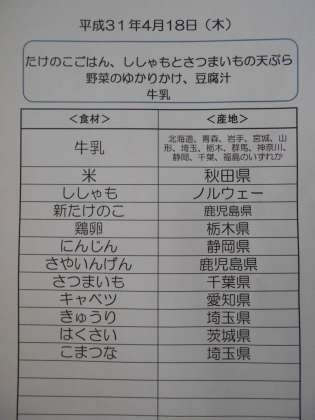 平成31年4月18日（木）
たけのこごはん、ししゃもとさつまいもの天ぷら
野菜のゆかりかけ、豆腐汁
牛乳
＜食材＞ ＜産地＞
牛乳 北海道、青森、岩手、宮城、山
形、埼玉、栃木、群馬、神奈川、
静岡、千葉、福島のいずれか
米 秋田県
ししゃも ノルウェー
新たけのこ 鹿児島県
鶏卵 栃木県
にんじん 静岡県
さやいんげん 鹿児島県
さつまいも 千葉県
キャベツ 愛知県
きゅうり 埼玉県
はくさい 茨城県
こまつな 埼玉県